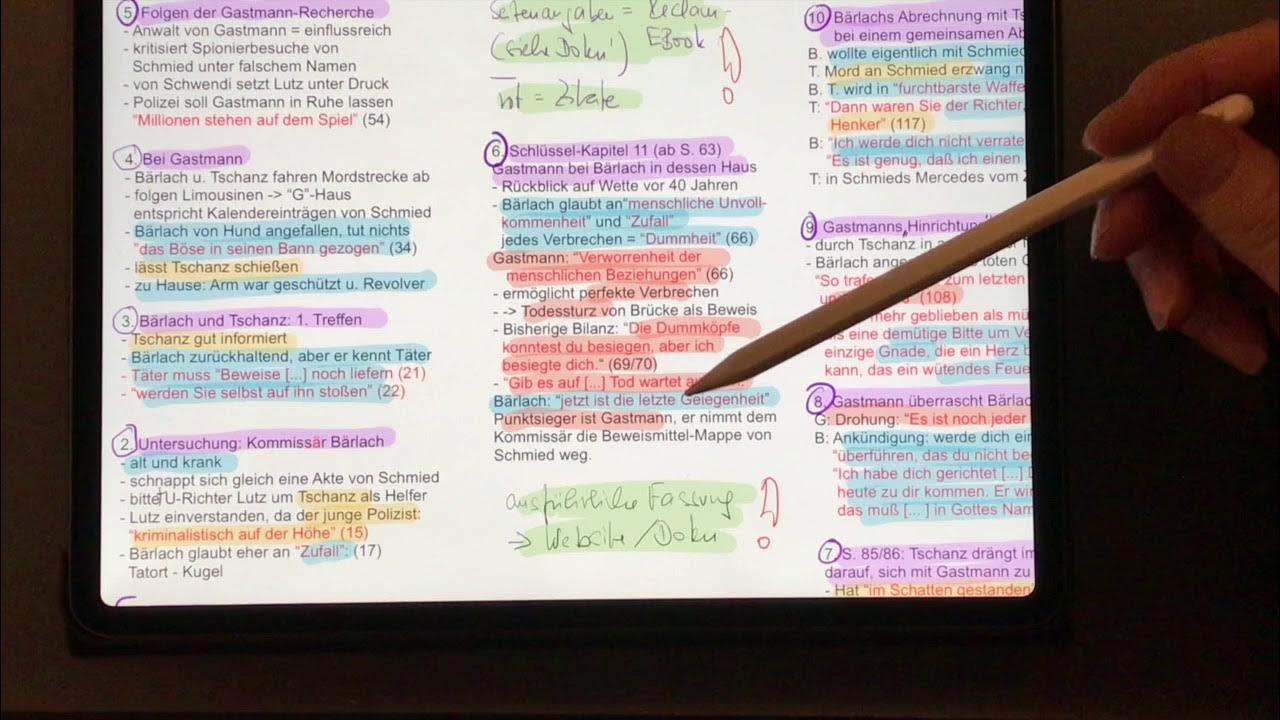 5 Folgen der Gastmann-Recherche
- Anwalt von Gastmann = einflussreich
- kritisiert Spionierbesuche von
Schmied unter falschem Namen
- von Schwendi setzt Lutz unter Druck
- Polizei soll Gastmann in Ruhe lassen
"Millionen stehen auf dem Spiel" (54)
4. Bei Gastmann
- Bärlach u. Tschanz fahren Mordstrecke ab
- folgen Limousinen -> "G"-Haus
entspricht Kalendereinträgen von Schmied
- Bärlach von Hund angefallen, tut nichts
"das Böse in seinen Bann gezogen" (34)
- lässt Tschanz schießen
- zu Hause: Arm war geschützt u. Revolver
3. Bärlach und Tschanz: 1. Treffen
- Tschanz gut informiert
- Bärlach zurückhaltend, aber er kennt Täter
- Täter muss "Beweise [...] noch liefern (21)
- "werden Sie selbst auf ihn stoßen" (22)
2. Untersuchung: Kommissär Bärlach
- alt und krank
- schnappt sich gleich eine Akte von Schmied
- bittet U-Richter Lutz um Tschanz als Helfer
- Lutz einverstanden, da der junge Polizist:
"kriminalistisch auf der Höhe" (15)
- Bärlach glaubt eher an "Zufall": (17)
Tatort - Kugel
Seitenangaben = Reclam-
(siehe Doku!) EBook
rot = Zitate
6. Schlüssel-Kapitel 11 (ab S. 63)
Gastmann bei Bärlach in dessen Haus
- Rückblick auf Wette vor 40 Jahren
- Bärlach glaubt an "menschliche Unvoll-
kommenheit" und "Zufall"
jedes Verbrechen = "Dummheit" (66)
Gastmann: "Verworrenheit der
menschlichen Beziehungen" (66)
- ermöglicht perfekte Verbrechen
- -> Todessturz von Brücke als Beweis
- Bisherige Bilanz: "Die Dummköpfe
konntest du besiegen, aber ich
besiegte dich." (69/70)
- "Gib es auf [...] Tod wartet
Bärlach: "jetzt ist die letzte Gelegenheit"
Punktsieger ist Gastmann, er nimmt dem
Kommissär die Beweismittel-Mappe von
Schmied weg.
ausführliche Fassung
-> Website/Doku
10 Bärlachs Abrechnung mit Ts
bei einem gemeinsamen Ab
B. wollte eigentlich mit Schmied
T. Mord an Schmied erzwang n
B. T. wird in "furchtbarste Waffe
T: "Dann waren Sie der Richter,
Henker" (117)
B: "Ich werde dich nicht verrate
"Es ist genug, daß ich einen
T: in Schmieds Mercedes vom
9 Gastmanns "Hinrichtun
- durch Tschanz in
- Bärlach ange toten
"So trafe zum letzten
(108)
mehr geblieben als mü
s eine demütige Bitte um Ve
einzige Gnade, die ein Herz b
kann, das ein wütendes Feue
8. Gastmann überrascht Bärlac
G: Drohung: "Es ist noch jeder
B: Ankündigung: werde dich ein
"überführen, das du nicht be
"Ich habe dich gerichtet [...]
heute zu dir kommen. Er wi
das muß [...] in Gottes Nam
7 S. 85/86: Tschanz drängt im
darauf, sich mit Gastmann zu
- Hat "im Schatten gestanden